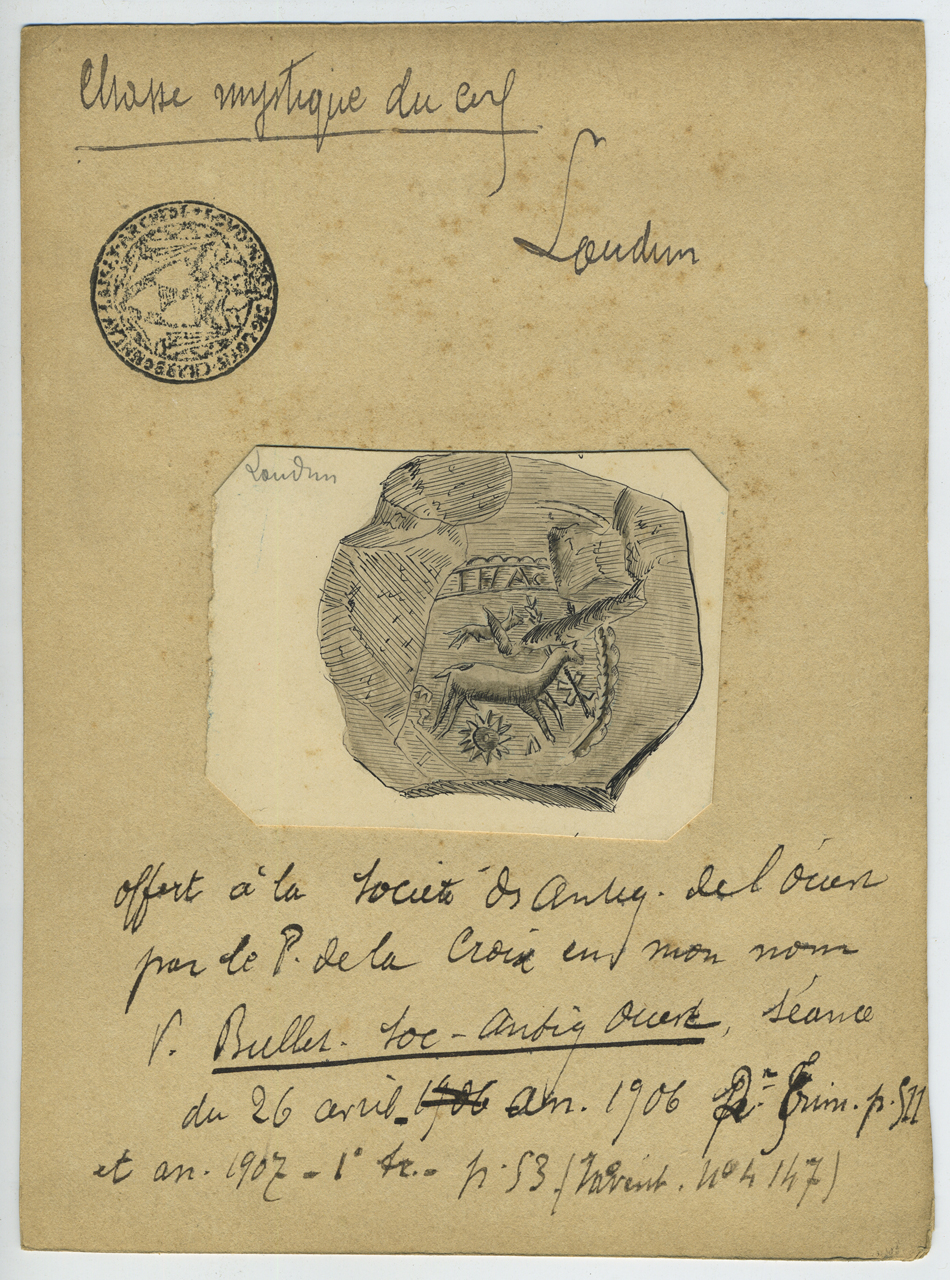 Chasse mystique du cerf
Loudun
Loudun
offert à la Société des Antiq. de l'Ouest
par le P. de la Croix en mon nom
V. Bullet. Soc - Antiq Ouest, séance
du 26 avril 1906 an. 1906 Trim. p. 511
et an. 1907 - 1er tr. - p. 53 (Invent. No 4147)